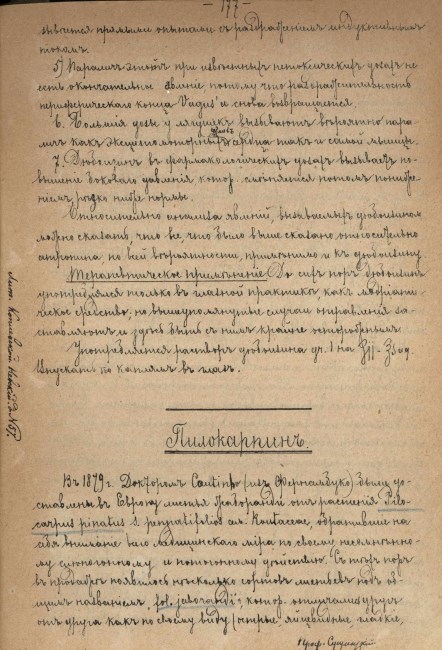 — 177 —
няется прямыми опытами съ раздраженіемъ индуктивнымъ
токомъ.
5) Параличъ этотъ при извѣстныхъ нетоксическихъ дозахъ не
есть окончательное явленіе потому что раздражительность
периферическаго конца Vagus'а снова возвращается.
6. Большія дозы у лягушекъ вызываютъ вѣроятно пара-
личъ какъ эксцитомоторныхъ узловъ сердца такъ и самой мышцы.
7. Дюбоизинъ въ фармакологическихъ дозахъ вызываетъ по-
вышеніе боковаго давленія котор. смѣняется потомъ пониже-
ніемъ, рѣдко ниже нормы.
Относительно анализа явленій, вызываемыхъ дюбоизиномъ
можно сказать, что все, что было выше сказано, относительно
атропина по всей вѣроятности, примѣнимо и къ дюбоизину.
Терапевтическое примѣненіе. До сихъ поръ дюбоизинъ
употреблялся только въ глазной практикѣ, какъ мидріати-
ческое средство, но вышеупомянутые случаи отравленія за-
ставляютъ и здѣсь быть съ нимъ крайне осторожнымъ.
Употребляется растворъ дюбоизина gr. 1 на
Впускать по каплямъ въ глазъ.
Пилокарпинъ.
Въ 1879 г. Докторомъ Coutinho (изъ Фернамбуко) были до-
ставлены въ Европу листья Яборанди отъ растенія Pilo-
carpus pinatus s. pennatifolius сем. Rutaceae, обратившіе на
себя вниманіе всего медицинскаго міра по своему несомнѣнно-
му слюногонному и потогонному дѣйствію. Съ тѣхъ поръ
въ продажѣ появилось нѣсколько сортовъ листьевъ подъ об-
щимъ названіемъ "fol. jaborandi", котор. отличались другъ
отъ друга какъ по своему виду (острые яйцевидные гладкіе,
Проф. Сущинскій.
Лит. Невскій д. № 59.